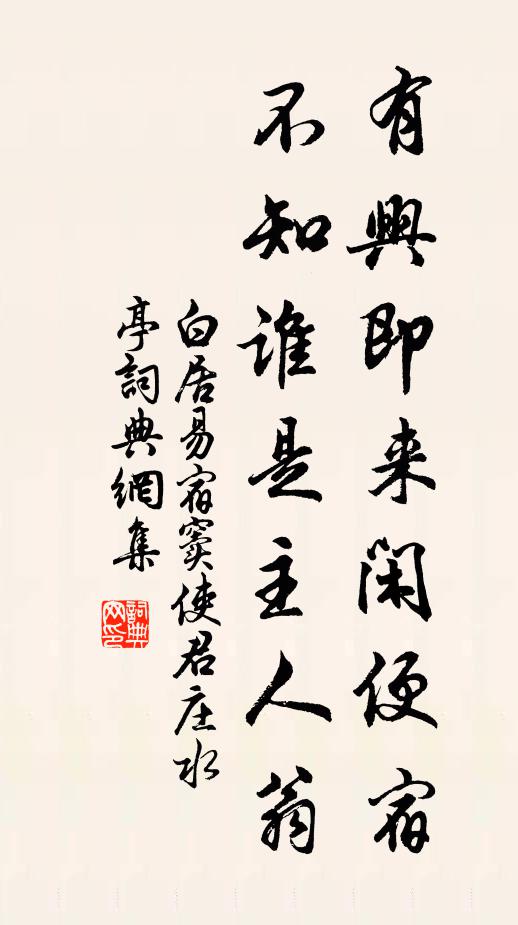 有興即来閑便宿
不知谁是主人翁
白居易宿竇使君庄水
亭詞典網集
詞典网印